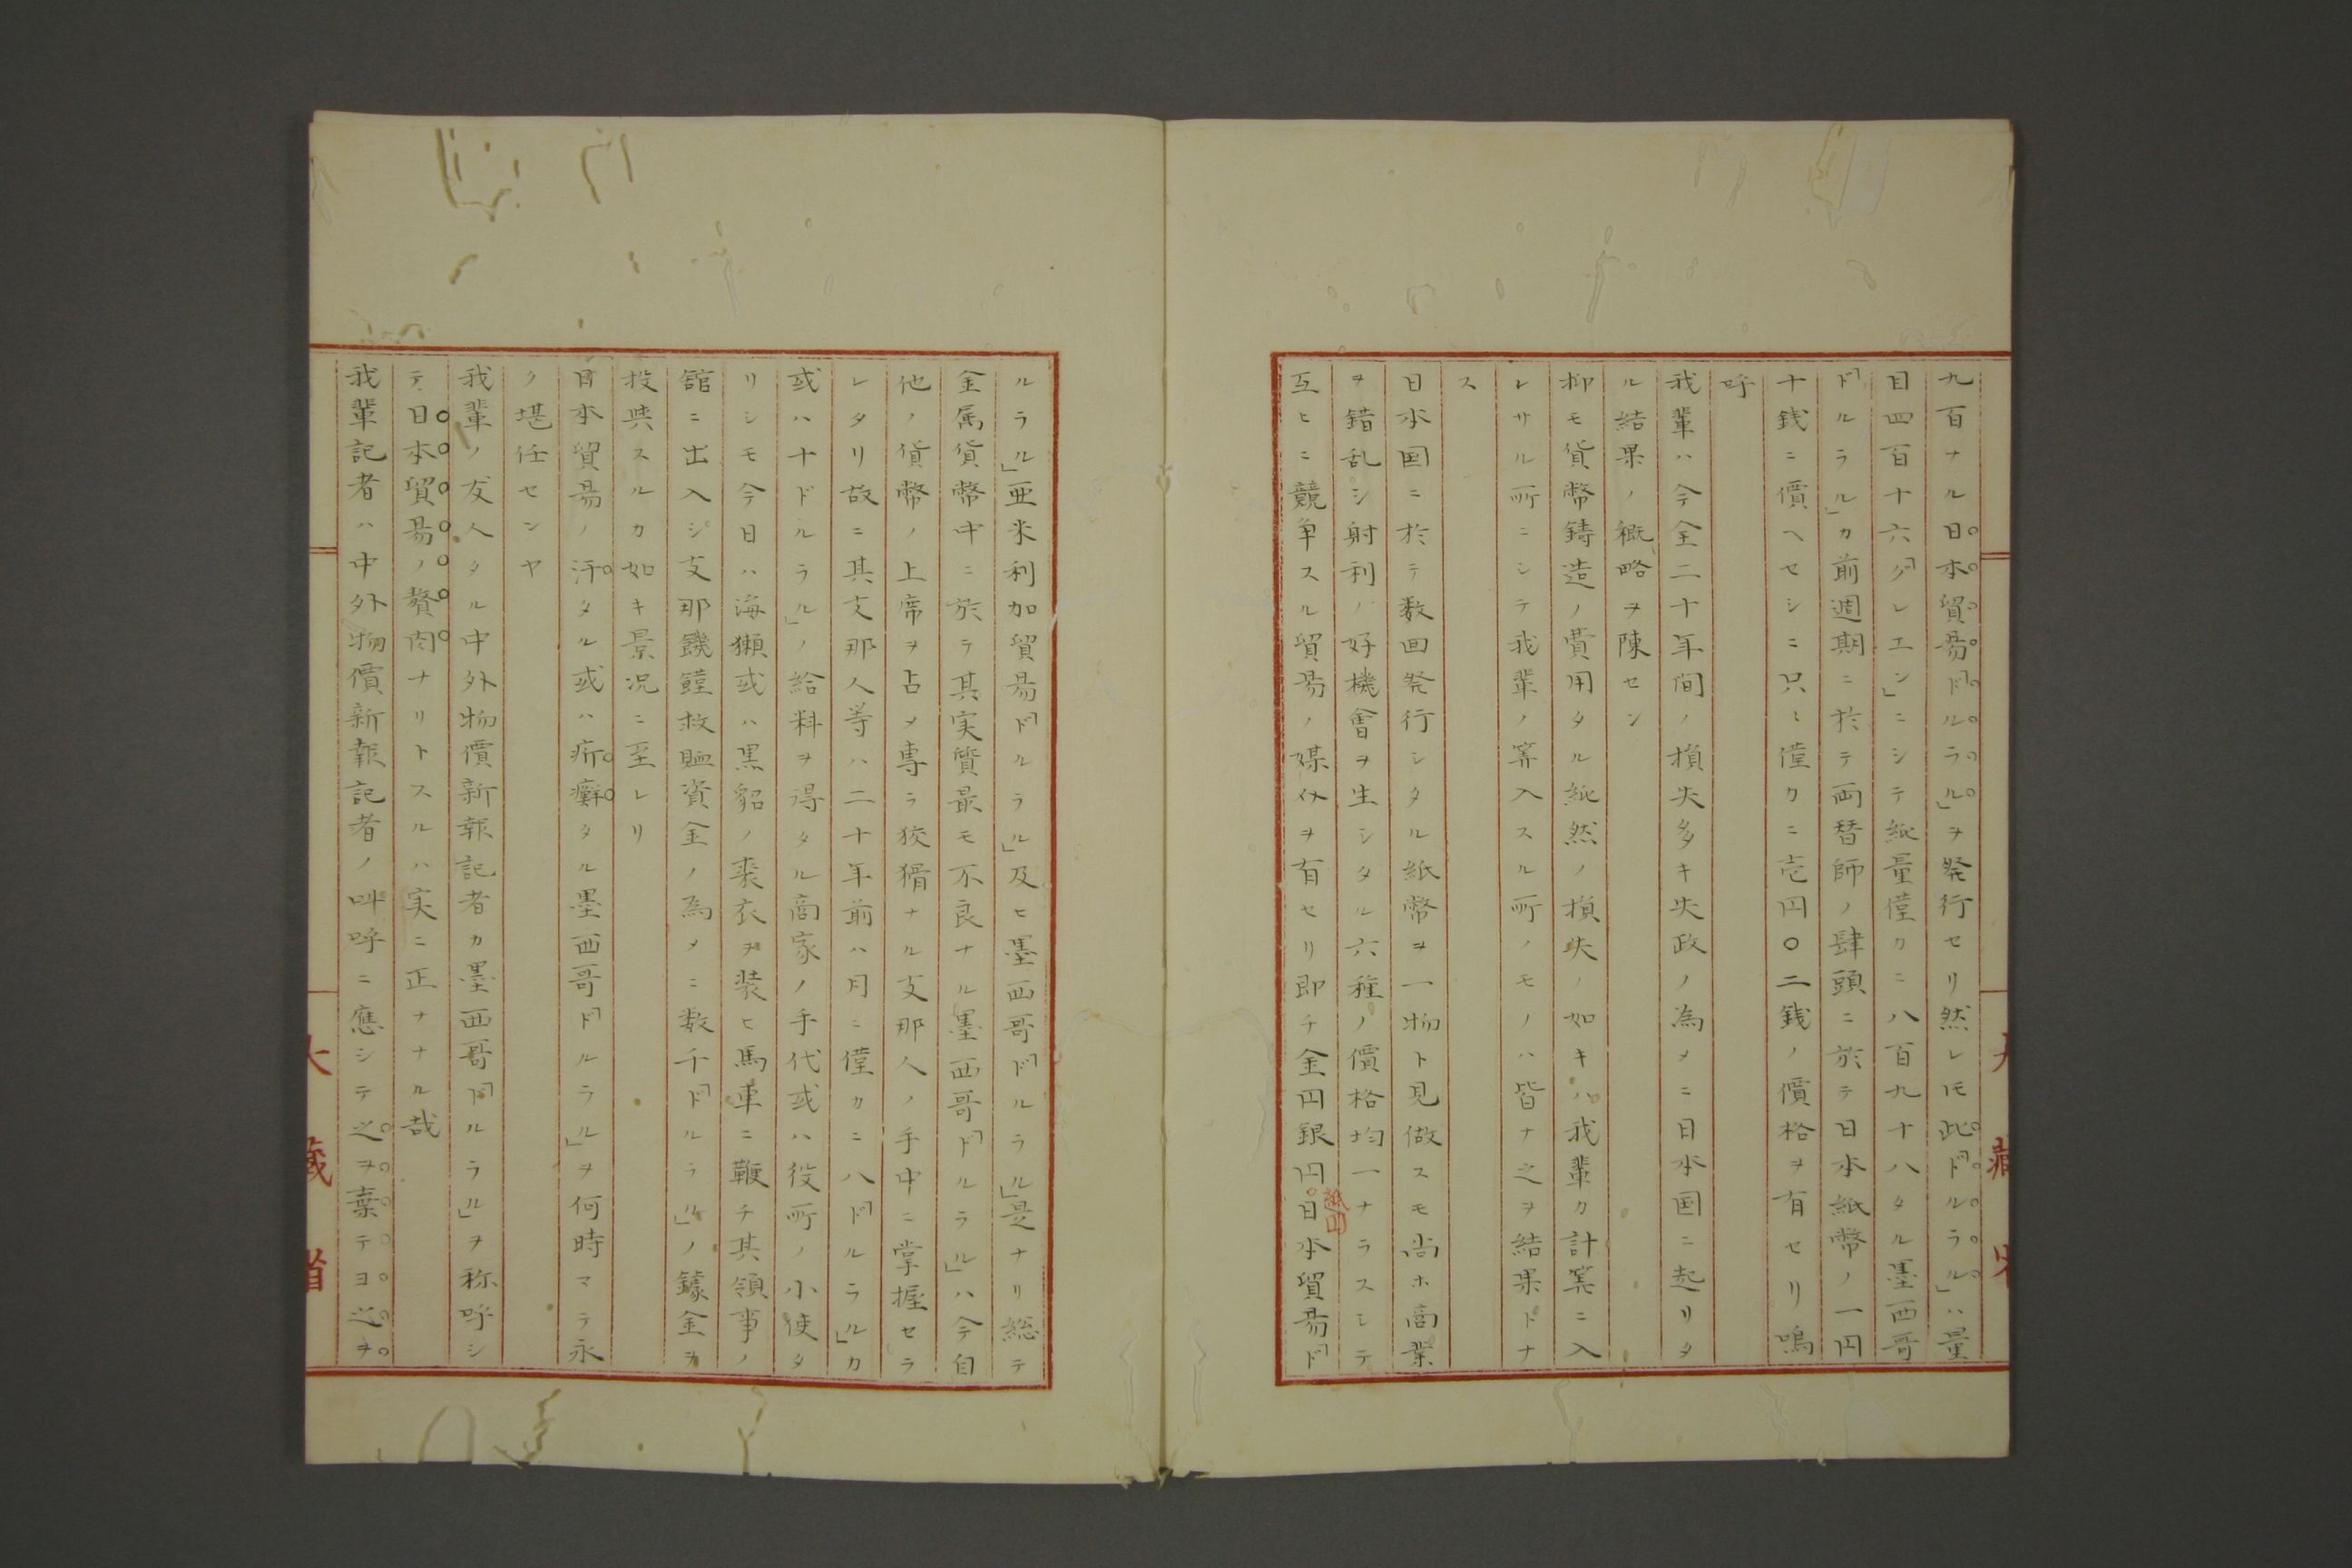 九百ナル日本貿易「ドルラル」ヲ発行セリ然レ𪜈此「ドルラル」ハ量
目四百十六「グレエン」ニシテ紙量僅カニ八百九十八タル墨西哥
「ドルラル」カ前週期ニ於テ両替師ノ肆頭ニ於テ日本紙幣ノ一円
十銭ニ價ヘセシニ只々僅カニ壱円〇二銭ノ價格ヲ有セリ嗚
呼
我輩ハ今全二十年間ノ損失多キ失政ノ為メニ日本国ニ起リタ
ル結果ノ概略ヲ陳セン
抑モ貨幣鋳造ノ費用タル紙然ノ損失ノ如キハ我輩カ計筭ニ入
レサル所ニシテ我輩ノ筭入スル所ノモノハ皆ナ之ヲ結果トナ
ス
日本国ニ於テ数回発行シタル紙幣ヲ一物ト見做スモ尚ホ商業
ヲ錯乱シ射利ノ好機會ヲ生シタル六種ノ價格均一ナラスシテ
互ヒニ競争スル貿易ノ媒介ヲ有セリ即チ金円銀円日本貿易「ド
紙円
ルラル」亜米利加貿易「ドルラル」及ヒ墨西哥「ドルラル」是ナリ総テ
金属貨幣中ニ於テ其実質最モ不良ナル墨西哥「ドルラル」ハ今自
他ノ貨幣ノ上席ヲ占メ専ラ狡猾ナル支那人ノ手中ニ掌握セラ
レタリ故ニ其支那人等ハ二十年前ハ月ニ僅カニ八「ドルラル」カ
或ハ十ドルラル」ノ給料ヲ得タル商家ノ手代或ハ役所ノ小使タ
リシモ今日ハ海獺或ハ黒貂ノ裘衣ヲ装ヒ馬車ニ鞭チ其領事ノ
舘ニ出入シ支那饑饉救賑資金ノ為メニ数千「ドルラル」ノ鐻金ヲ
投與スルカ如キ景况ニ至レリ
日本貿易ノ汗タル或ハ疥癬タル墨西哥「ドルラル」ヲ何時マテ永
ク堪任センヤ
我輩ノ友人タル中外物價新報記者カ墨西哥「ドルラル」ヲ称呼シ
テ日本貿易ノ贅肉ナリトスルハ実ニ正ナナル哉
我輩記者ハ中外物價新報記者ノ呌呼ニ應シテ之ヲ棄テヨ之ヲ
大藏省